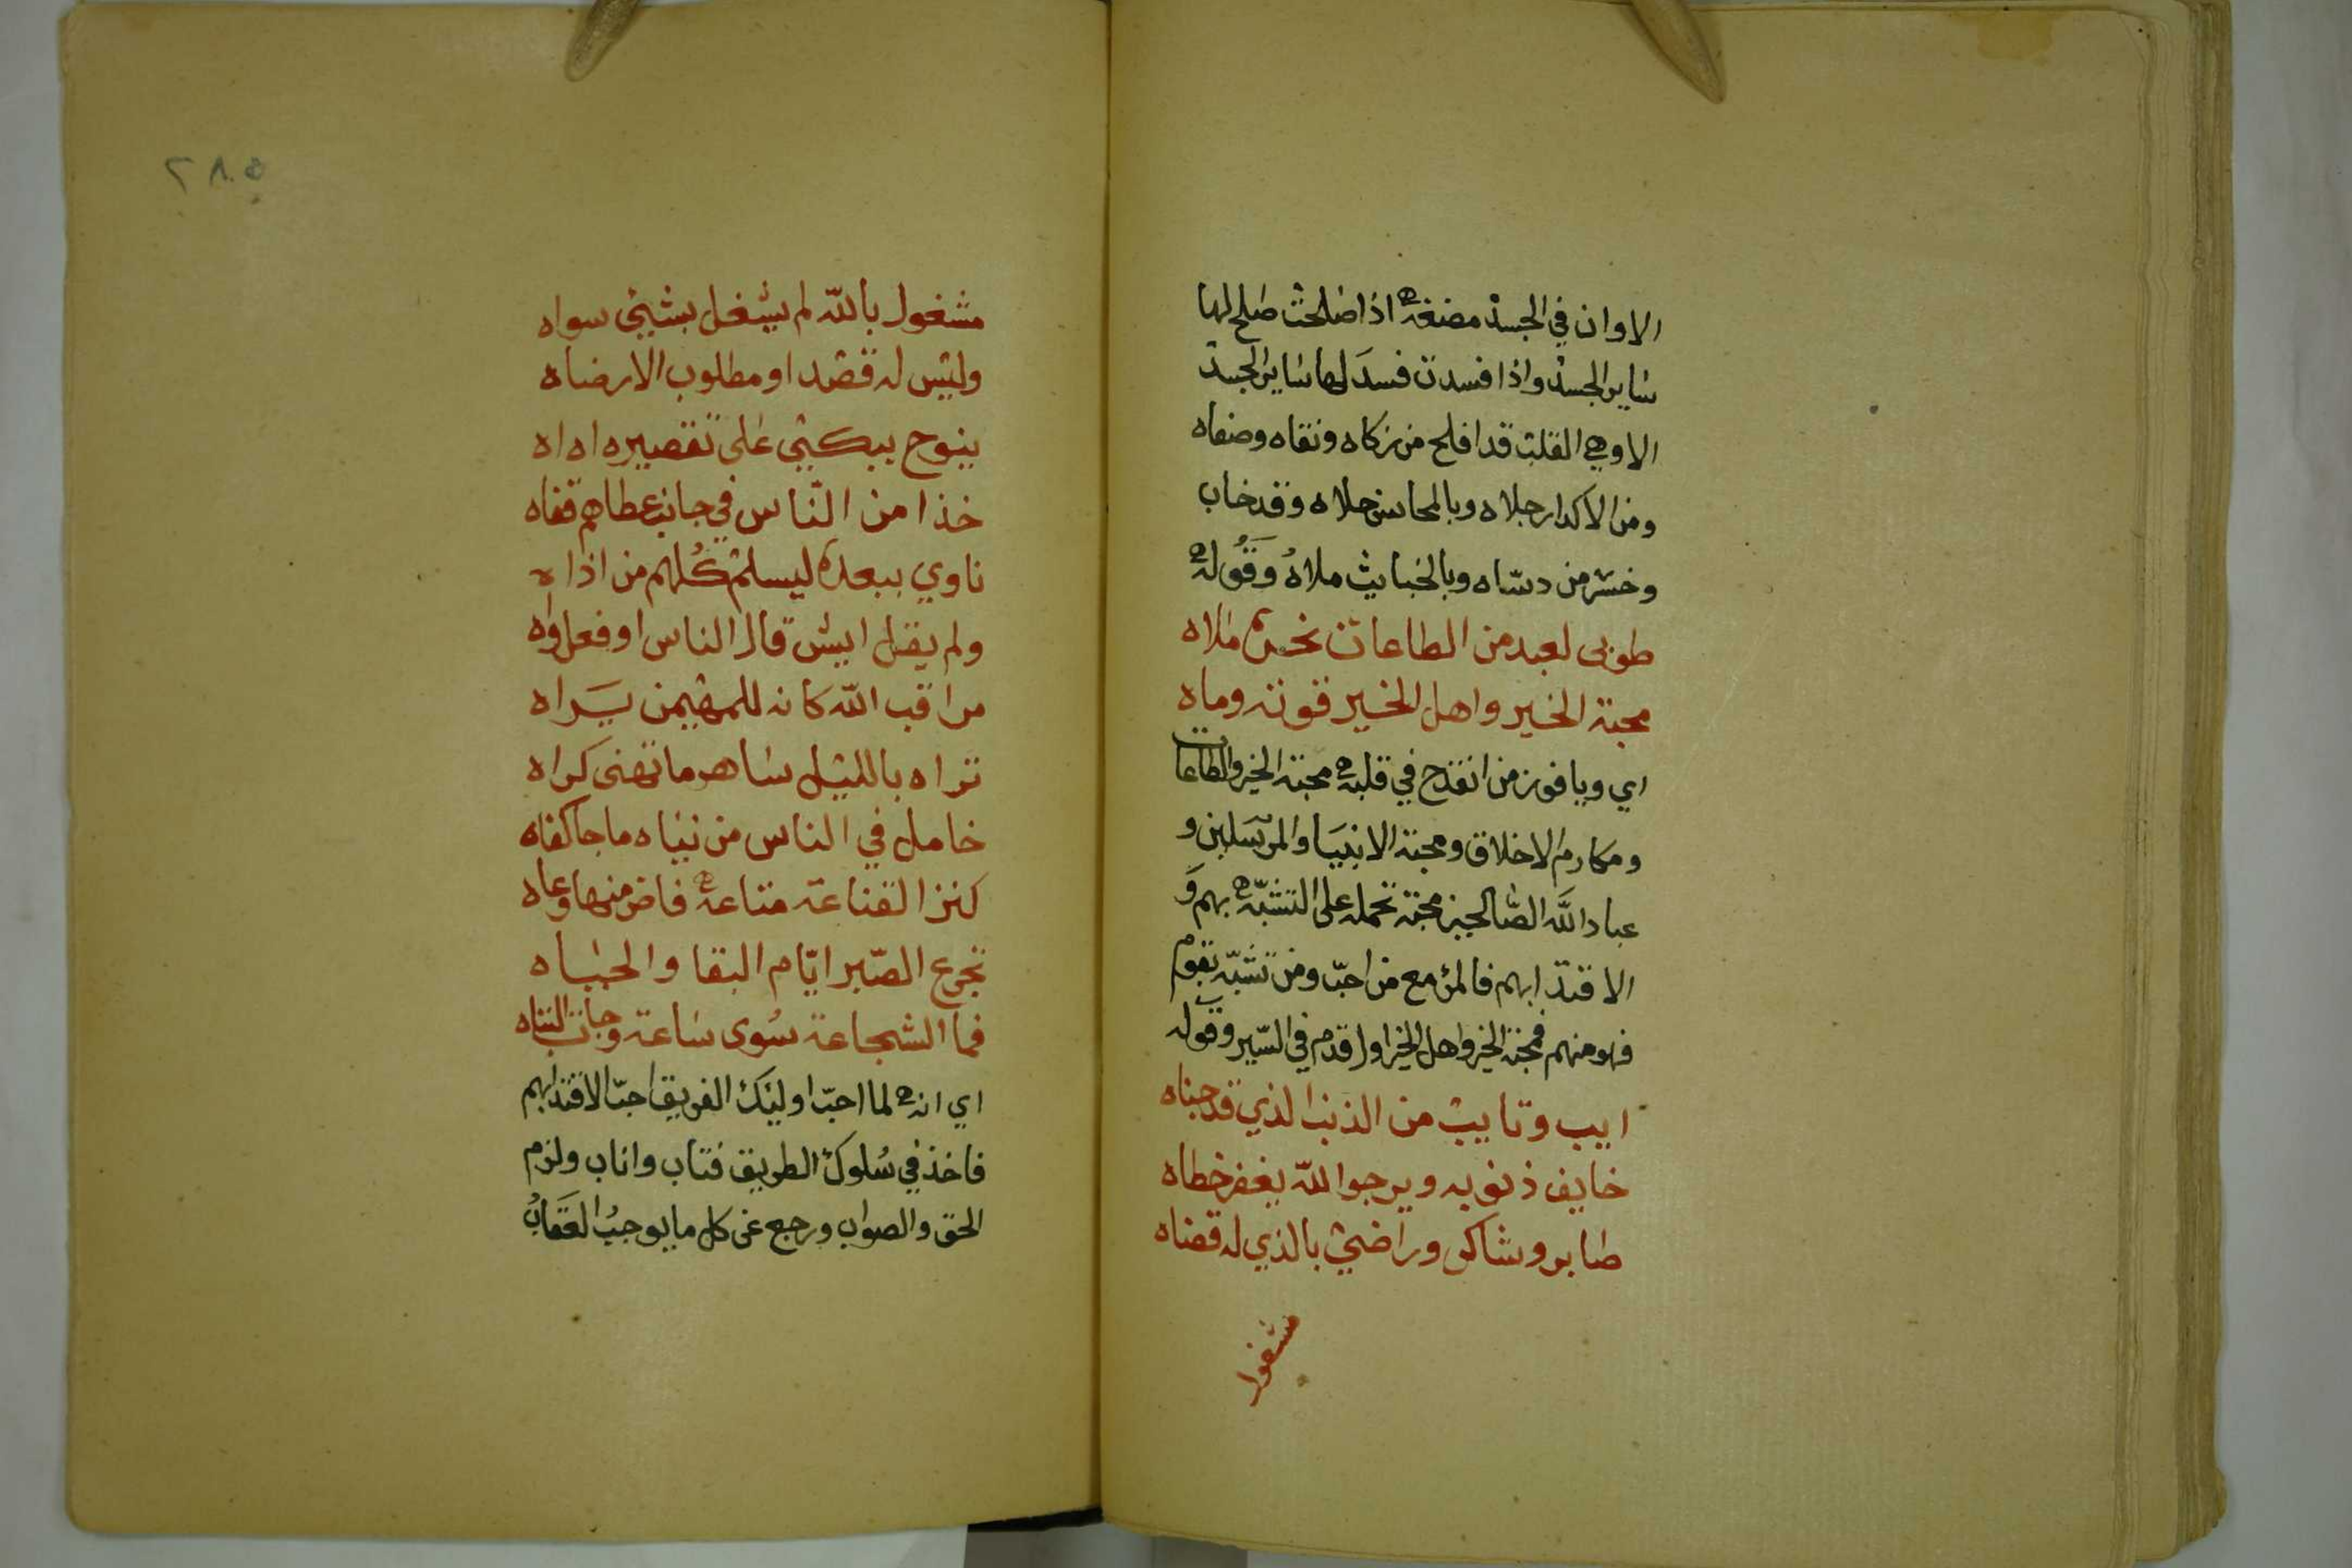 الا وان في الجسد مضغة اذا صلحت صلح لها
ساير الجسد واذا فسدت فسد لها ساير الجسد
الا وهي القلب قد افلح من زكاه ونقاه وصفاه
ومن الاكدار جلاه وبالمحاسن حلاه وقد خاب
وخسر من دساه وبالخبايث ملاه وقوله
طوبى لعبد من الطاعات ملاه
محبة الخير واهل الخير قوته وماه
اي ويا فوز من انقدح في قلبه محبة الخير والطاعات
ومكارم الاخلاق ومحبة الانبيا والمرسلين و
عباد الله الصالحين محبة تحمله على التشبه بهم و
الاقتدا بهم فالمرء مع من احب ومن تشبه بقوم
فهو منهم فمحبة الخير واهل الخير اول قدم في السير وقوله
ايب وتايب من الذنب الذي قد جناه
خايف ذنوبه ويرجوا الله يغفر خطاه
صابر وشاكر وراضي بالذي له قضاه
مشغول
مشغول بالله لم يشغل بشيئ سواه
وليس له قصد او مطلوب الا رضاه
ينوح يبكي على تقصيره اه اه
خذا من الناس في جانب عطاهم قفاه
ناوي ببعده ليسلم كلهم من اذاه
ولم يقل ايش قال الناس او فعل واه
مراقب الله كانه للمهيمن يراه
تراه بالليل ساهر ما تهنى كراه
خامل في الناس من دنياه ما جا كفاه
كنز القناعة متاعه فاض منها وعاه
تجرع الصبر ايام البقا والحياه
فما الشجاعة سوى ساعة وجات النباه
اي انه لما احب اوليك الفريق احب الاقتدا بهم
فاخذ في سلوك الطريق فتاب واناب ولزم
الحق والصواب ورجع عن كل ما يوجب العقاب
٢٨٥